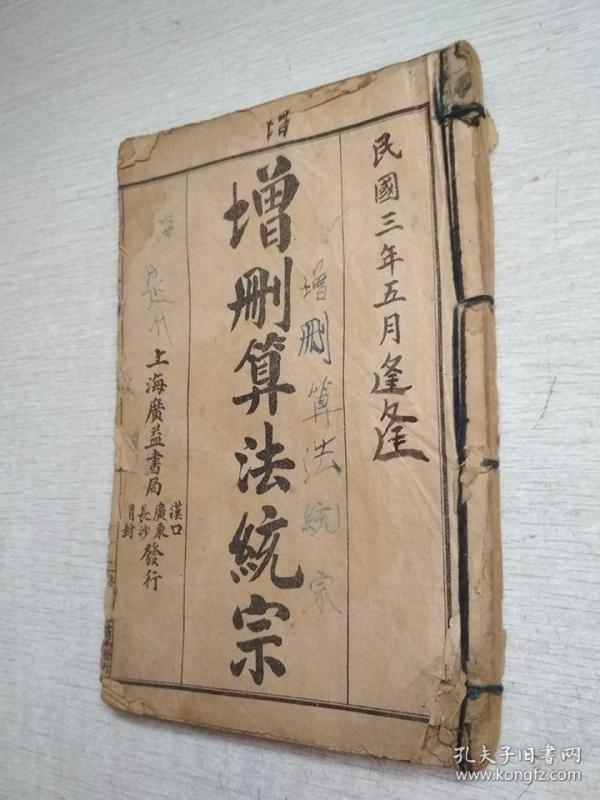 增
民國三年五月逢逢
增刪算法統宗
增刪算法統宗
海
上海廣益書局
漢口
廣東
長沙
發行
孔夫子旧书网
www.kongfz.com